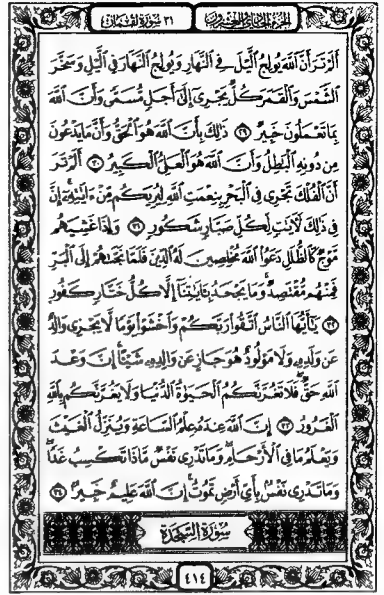 الجزء الحادي والعشرون
٣١ سورة لقمان
أَلَمْ تَرَ أَنَّ ٱللَّهَ يُولِجُ ٱلَّيْلَ فِى ٱلنَّهَارِ وَيُولِجُ ٱلنَّهَارَ فِى ٱلَّيْلِ وَسَخَّرَ
ٱلشَّمْسَ وَٱلْقَمَرَ كُلٌّ يَجْرِىٓ إِلَىٰٓ أَجَلٍ مُّسَمًّى وَأَنَّ ٱللَّهَ
بِمَا تَعْمَلُونَ خَبِيرٌ ٢٩ ذَٰلِكَ بِأَنَّ ٱللَّهَ هُوَ ٱلْحَقُّ وَأَنَّ مَا يَدْعُونَ
مِن دُونِهِ ٱلْبَٰطِلُ وَأَنَّ ٱللَّهَ هُوَ ٱلْعَلِىُّ ٱلْكَبِيرُ ٣٠ أَلَمْ تَرَ
أَنَّ ٱلْفُلْكَ تَجْرِى فِى ٱلْبَحْرِ بِنِعْمَتِ ٱللَّهِ لِيُرِيَكُم مِّنْ ءَايَٰتِهِۦٓ إِنَّ
فِى ذَٰلِكَ لَءَايَٰتٍ لِّكُلِّ صَبَّارٍ شَكُورٍ ٣١ وَإِذَا غَشِيَهُم
مَّوْجٌ كَٱلظُّلَلِ دَعَوُا۟ ٱللَّهَ مُخْلِصِينَ لَهُ ٱلدِّينَ فَلَمَّا نَجَّىٰهُمْ إِلَى ٱلْبَرِّ
فَمِنْهُم مُّقْتَصِدٌ وَمَا يَجْحَدُ بِـَٔايَٰتِنَآ إِلَّا كُلُّ خَتَّارٍ كَفُورٍ
٣٢ يَٰٓأَيُّهَا ٱلنَّاسُ ٱتَّقُوا۟ رَبَّكُمْ وَٱخْشَوْا۟ يَوْمًا لَّا يَجْزِى وَالِدٌ
عَن وَلَدِهِۦ وَلَا مَوْلُودٌ هُوَ جَازٍ عَن وَالِدِهِۦ شَيْـًٔا إِنَّ وَعْدَ
ٱللَّهِ حَقٌّ فَلَا تَغُرَّنَّكُمُ ٱلْحَيَوٰةُ ٱلدُّنْيَا وَلَا يَغُرَّنَّكُم بِٱللَّهِ
ٱلْغَرُورُ ٣٣ إِنَّ ٱللَّهَ عِندَهُۥ عِلْمُ ٱلسَّاعَةِ وَيُنَزِّلُ ٱلْغَيْثَ
وَيَعْلَمُ مَا فِى ٱلْأَرْحَامِ وَمَا تَدْرِى نَفْسٌ مَّاذَا تَكْسِبُ غَدًا
وَمَا تَدْرِى نَفْسٌۢ بِأَىِّ أَرْضٍ تَمُوتُ إِنَّ ٱللَّهَ عَلِيمٌ خَبِيرٌۢ ٣٤
سُورَةُ السَّجْدَةِ
٤١٤